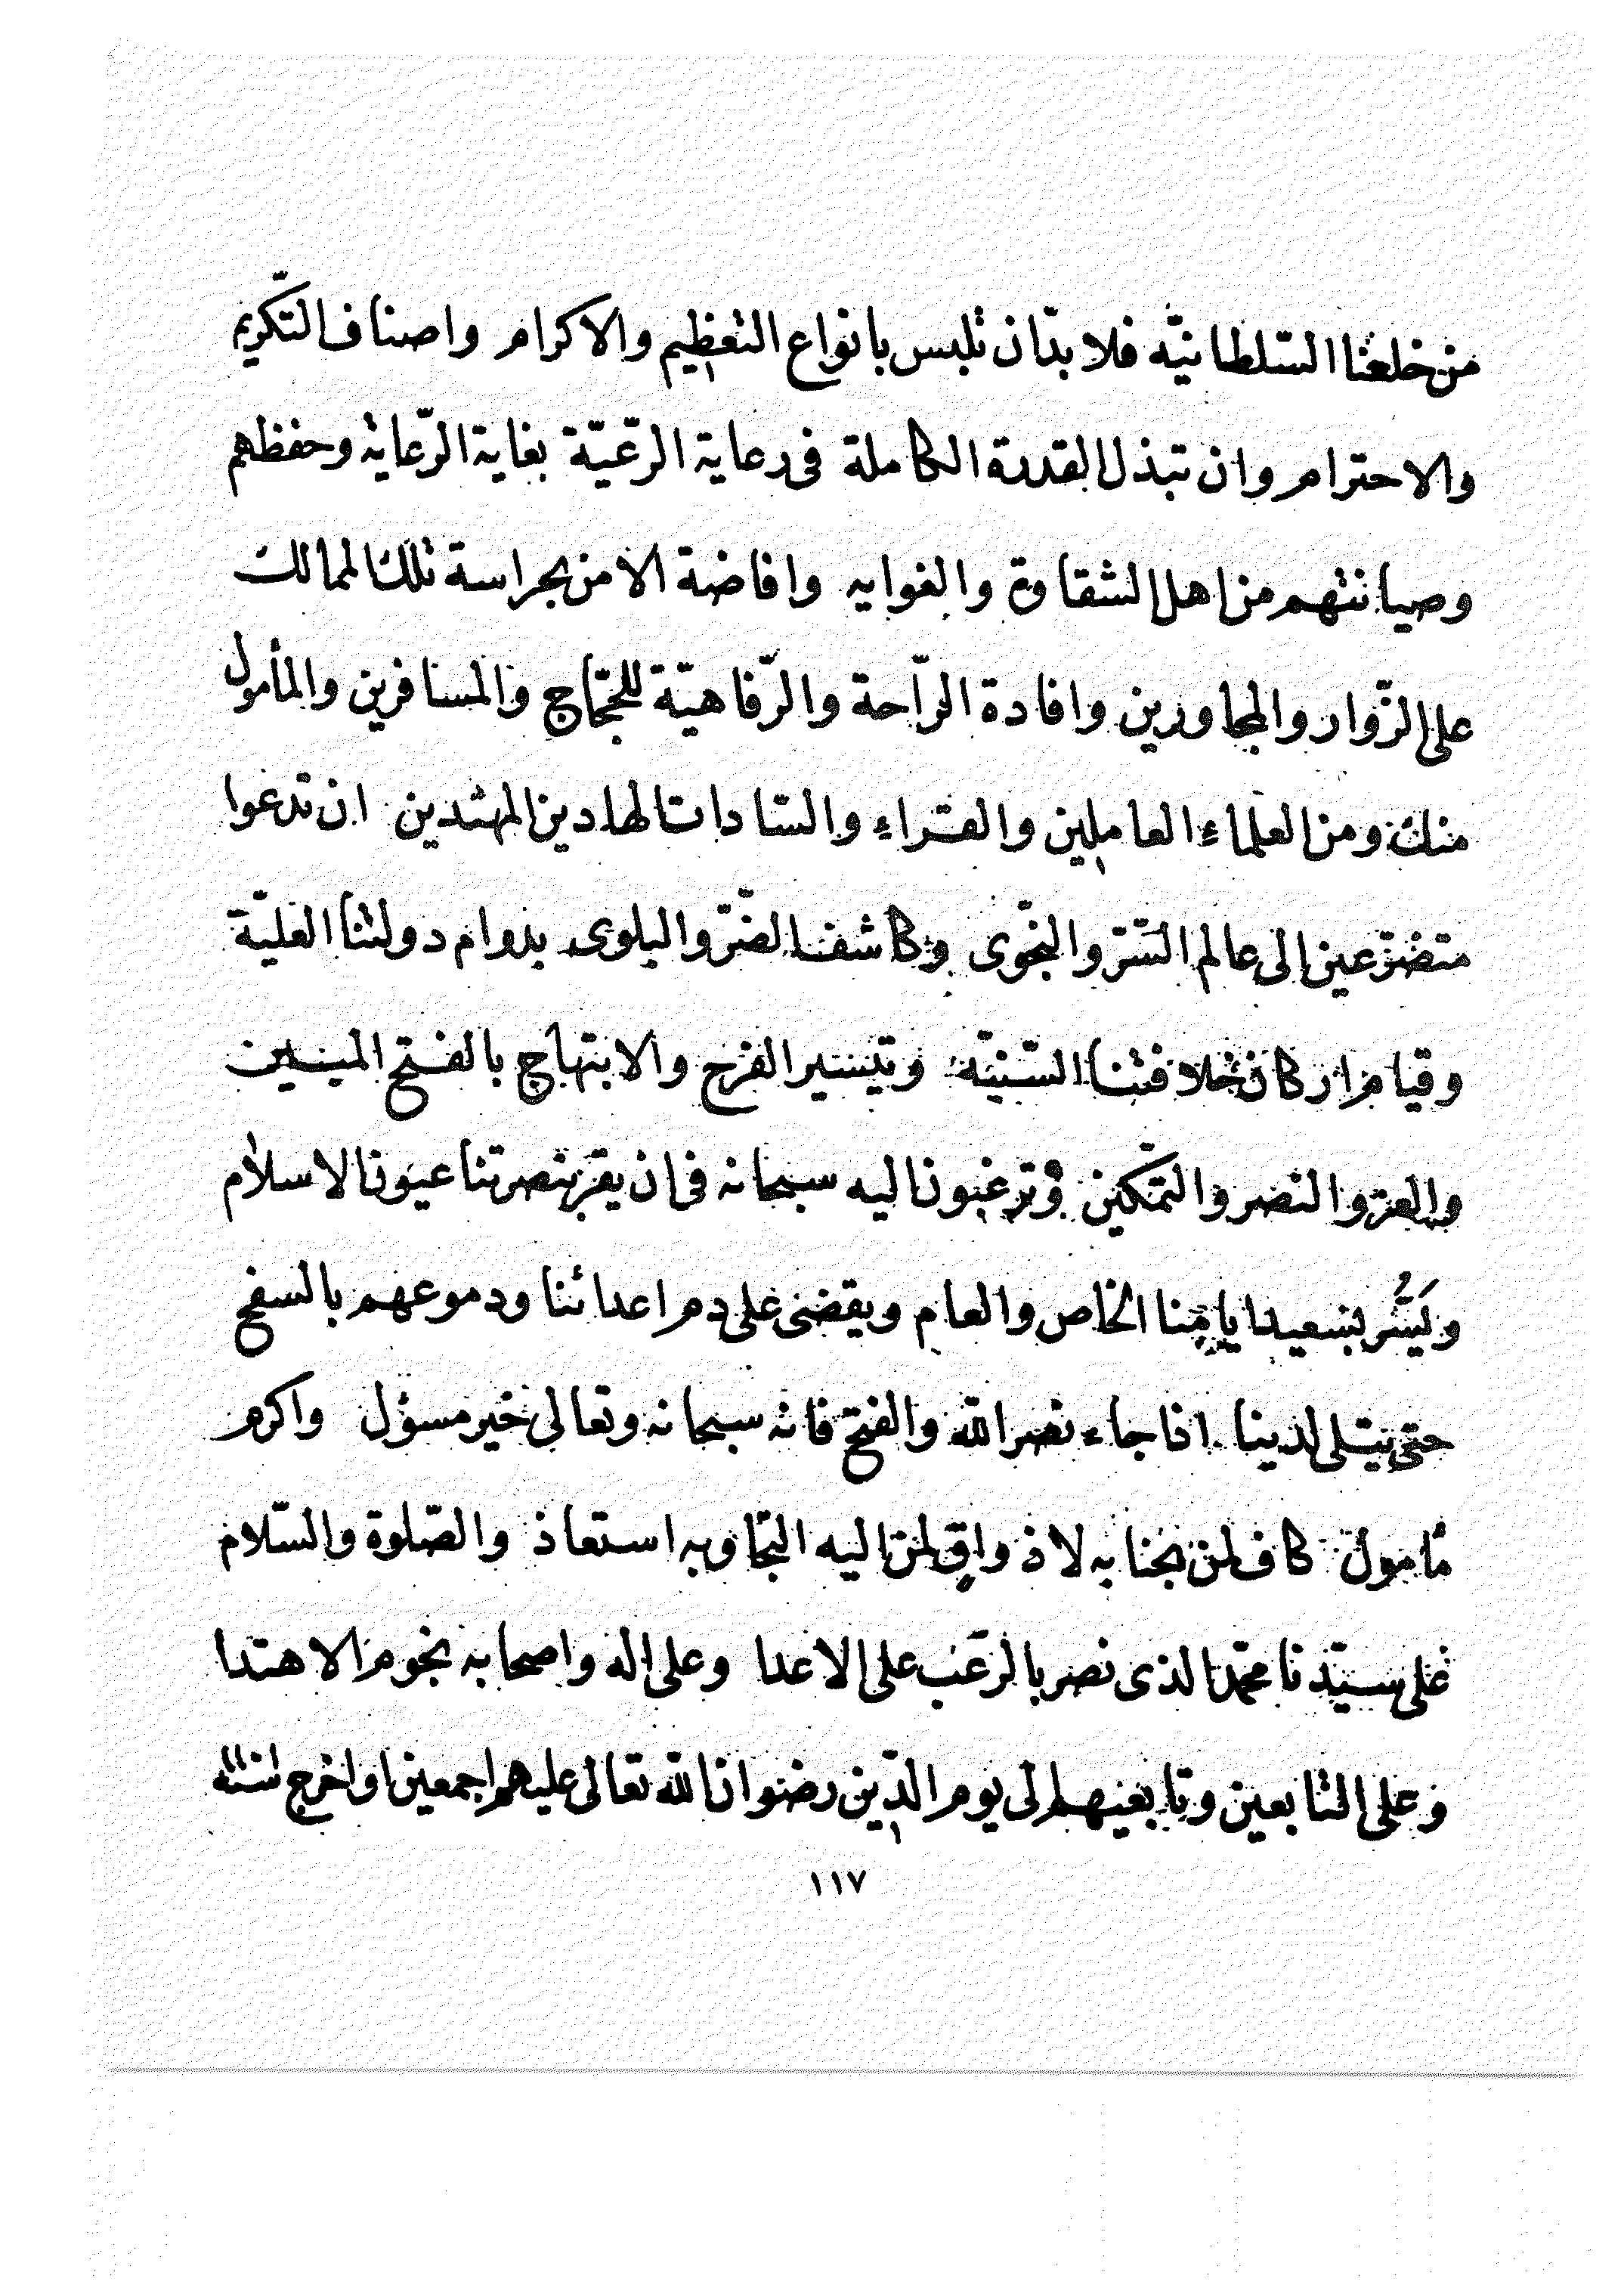 من خلعتنا السّلطانيّه فلا بدّ ان تلبس بانواع التعظيم والاكرام واصناف التّكريم
والاحترام وان تبذل القدرة الكاملة فى رعاية الرّعيّة بغاية الرّعاية وحفظهم
وصيانتهم من اهل الشقاوة والغوايه وافاضة الامن بحراسة تلك الممالك
على الزّوار والمجاورين وافادة الرّاحة والرّفاهيّة للحجّاج والمسافرين والمأمول
منك ومن العلماء العاملين والقراء والسّادات الهادين المهتدين ان تدعوا
متضرّعين الى عالم السّرّ والنّجوى وكاشف الضّرّ والبلوى بدوام دولتنا العليّة
وقيام اركان خلافتنا السّنيّه وتيسير الفرج والابتهاج بالفتح المبين
والعز والنصر والتمّكين وترغبون اليه سبحانه فى ان يقرّ بنصرتنا عيون الاسلام
ويَسُّر بسعيد ايامنا الخاص والعام ويقضى على دم اعدائنا ودموعهم بالسفح
حتى يتلى لدينا اذا جاء نصر الله والفتح فانه سبحانه وتعالى خير مسؤل واكرم
مأمول كاف لمن بجنابه لاذ واقٍ لمن اليه التجا وبه استعاذ والصّلوة والسّلام
على سيّدنا محمّد الذى نصر بالرّعب على الاعدا وعلى اله واصحابه نجوم الاهتدا
وعلى التابعين وتابعيهم الى يوم الدّين رضوان الله تعالى عليهم اجمعين اواخرج لسنة
١١٧